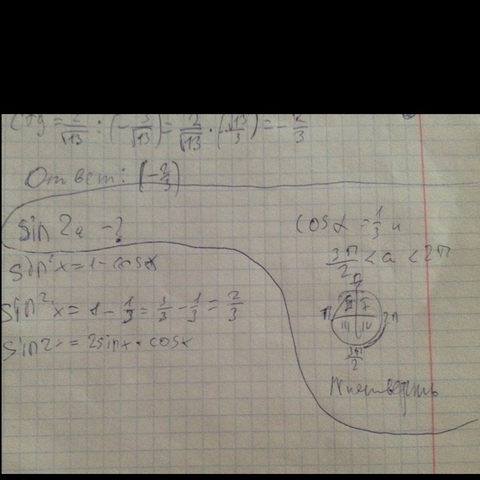 Ctg = 2/√13 : (-3/√13) = 2/√13 · (-√13/3) = -2/3
Ответ: (-2/3)
sin 2a - ?
cos α = 1/3 и
3π/2 < a < 2π
sin²x = 1 - cosx
sin²x = 1 - 1/3 = 3/3 - 1/3 = 2/3
sin2x = 2sinx · cosx
π
II I
III IV
2π
3π/2
IV четверть